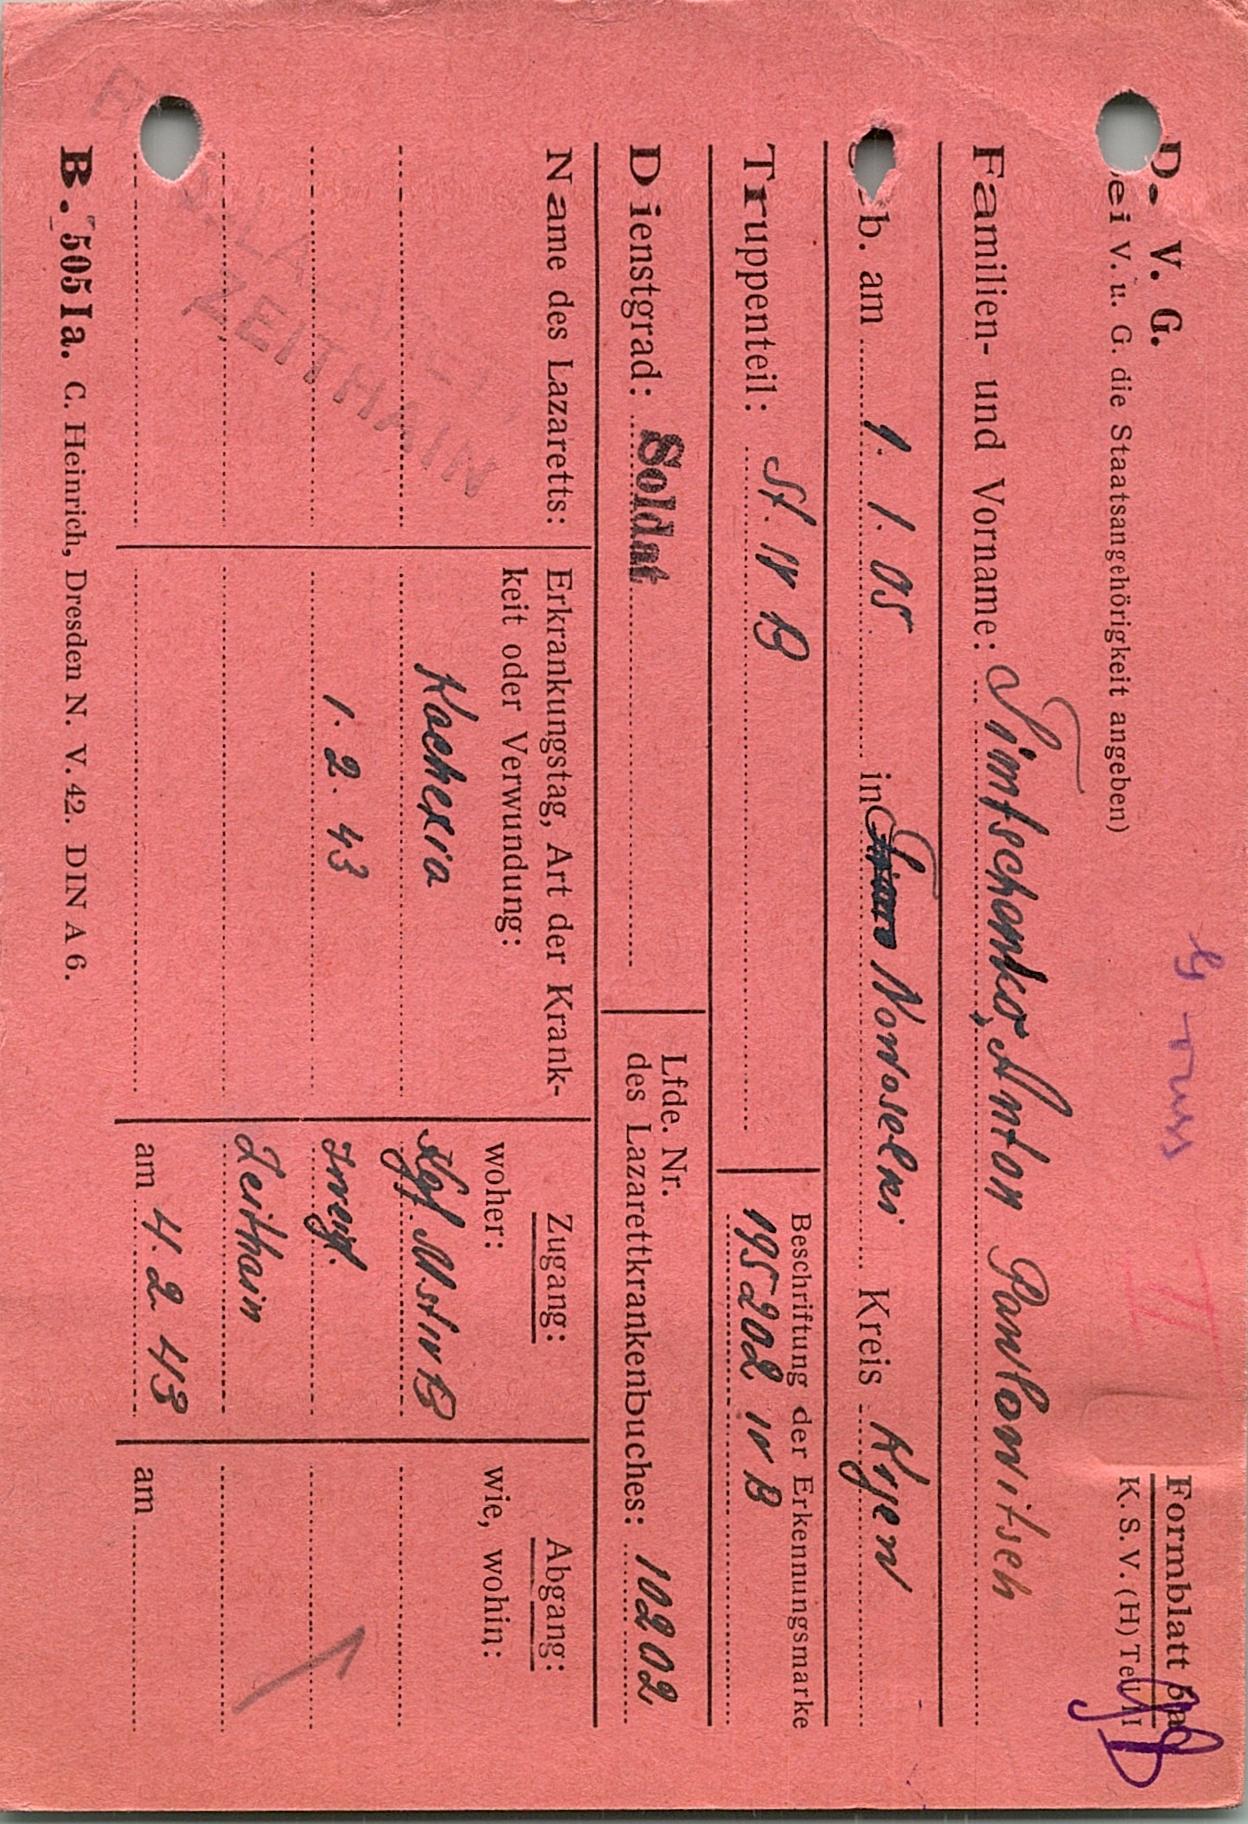 D. V. G.
ei V. u. G. die Staatsangehörigkeit angeben)
russ
II
Formblatt 5a
K. S. V. (H) Teil II
Familien- und Vorname: Timtschenko, Anton Pawlowitsch
b. am 1. 1. 05 in Nowoselki Kreis Kyew
Truppenteil: St. IV B
Beschriftung der Erkennungsmarke
195202 IV B
Dienstgrad: Soldat
Lfde. Nr.
des Lazarettkrankenbuches: 10202
Name des Lazaretts:
ZEITHAIN
Erkrankungstag, Art der Krank-
keit oder Verwundung:
Kachexia
1. 2. 43
Zugang:
woher:
Kgf. M. St IV B
Zweigl.
Zeithain
am 4. 2. 43
Abgang:
wie, wohin:
am
B. 505 Ia. C. Heinrich, Dresden N. V. 42. DIN A 6.